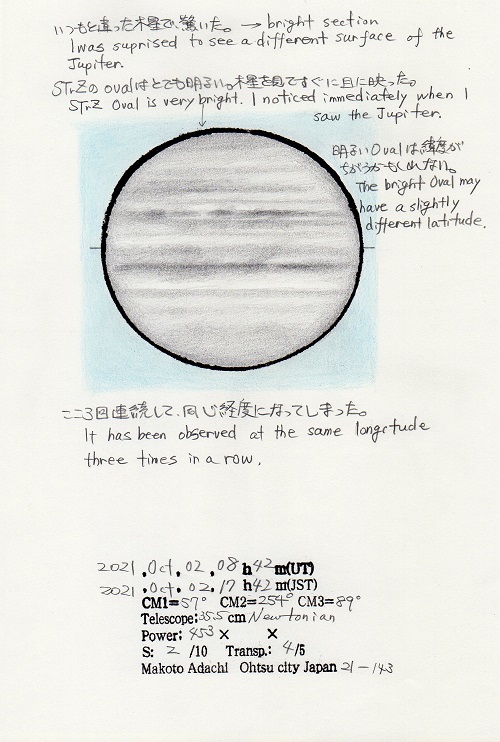 いつもと違った木星で、驚いた。 → bright section
I was suprised to see a different surface of the
Jupiter.
STrZのovalはとても明るい。木星を見てすぐに目に映った。
STrZ Oval is very bright. I noticed immediately when I
saw the Jupiter.
明るいOvalは緯度が
ちがうかもしれない。
The bright Oval may
have a slightly
different latitude.
ここ3回連続して、同じ経度になってしまった。
It has been observed at the same longitude
three times in a row.
2021.Oct.02.08h42m(UT)
2021.Oct.02.17h42m(JST)
CM1=57° CM2=254° CM3=89°
Telescope:35.5cm Newtonian
Power: 453× ×
S: 2 /10 Transp.: 4/5
Makoto Adachi Ohtsu city Japan 21-143